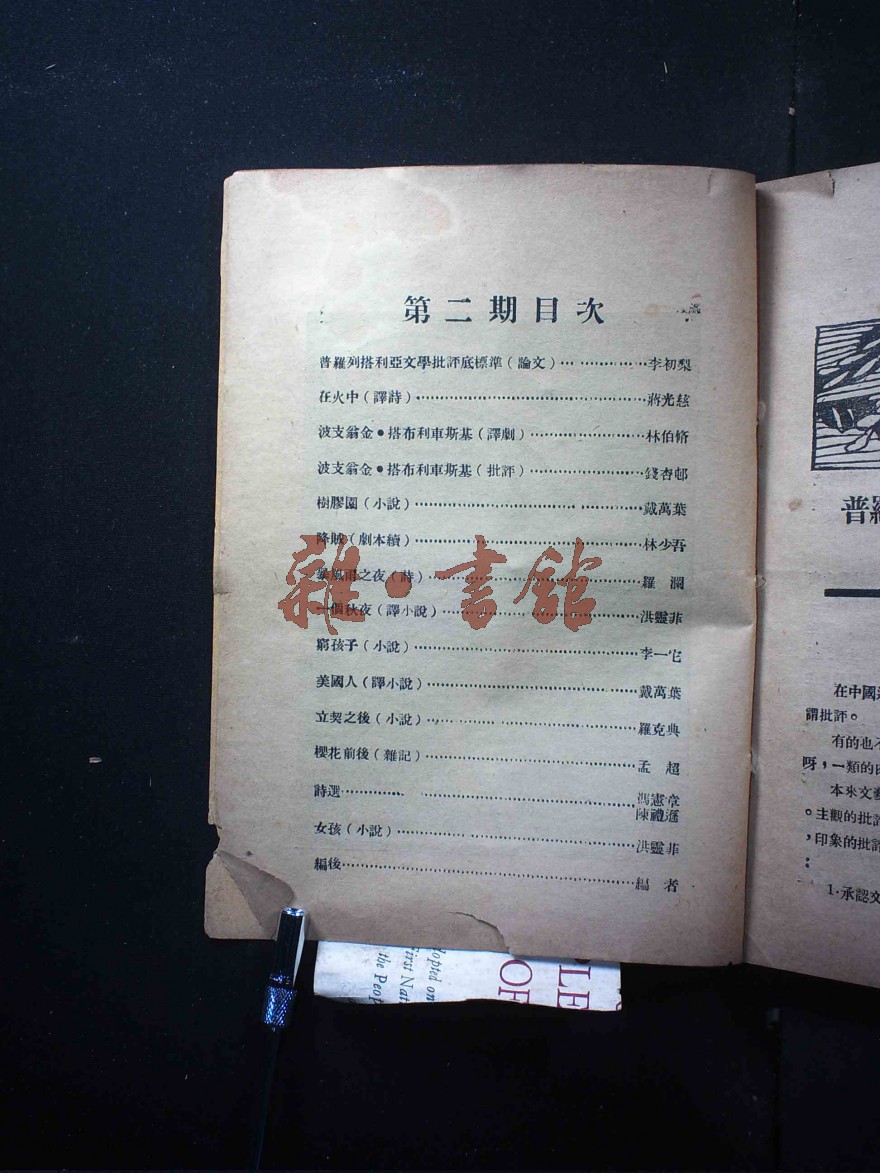 第二期目次
普羅列搭利亞文學批評底標準（論文）…………………李初梨
在火中（譯詩）…………………蔣光慈
波支翁金•搭布利車斯基（譯劇）…………………林伯脩
波支翁金•搭布利車斯基（批評）…………………錢杏邨
樹膠園（小說）…………………戴萬葉
降賊（劇本續）…………………林少吾
暴風雨之夜（詩）…………………羅瀾
一個秋夜（譯小說）…………………洪靈菲
窮孩子（小說）…………………李一它
美國人（譯小說）…………………戴萬葉
立契之後（小說）…………………羅克典
櫻花前後（雜記）…………………孟超
詩選…………………馮憲章
陳禮遜
女孩（小說）…………………洪靈菲
編後…………………編者
雜•書館
普羅
在中國
謂批評。
有的也不
呀，一類的
本來文藝
。主觀的批評
，印象的批評
：
1.承認文
dopted on
First Nat
the Peop
PLE
OF